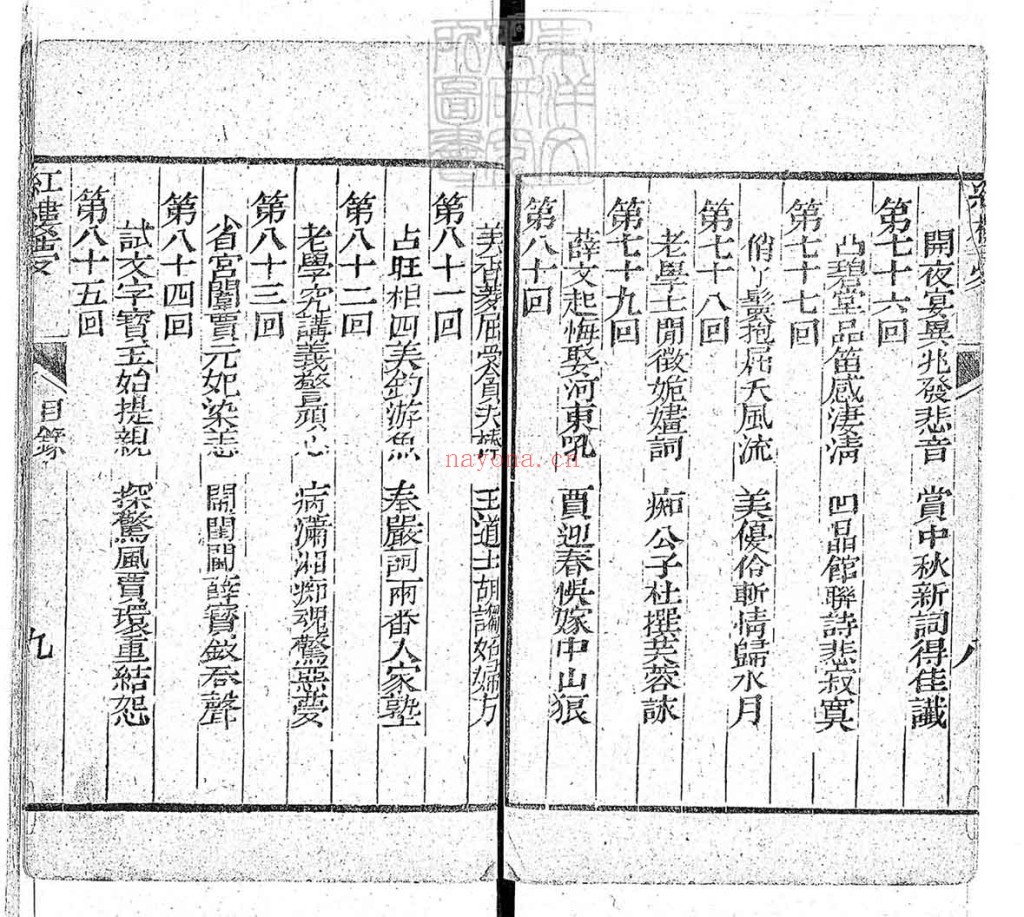 開夜宴異兆發悲音　賞中秋新詞得佳讖
第七十六回
凸碧堂品笛感淒清　凹晶館聯詩悲寂寞
第七十七回
俏丫鬟抱屈夭風流　美優伶斬情歸水月
第七十八回
老學士閒徵姽嫿詞　痴公子杜撰芙蓉詠
第七十九回
薛文起悔娶河東吼　賈迎春悞嫁中山狼
第八十回
美香菱屈受貪夫棒　王道士胡謅妬婦方
第八十一回
占旺相四美釣游魚　奉嚴詞兩番入家塾
第八十二回
老學究講義警頑心　病瀟湘痴魂驚惡夢
第八十三回
省宮闈賈元妃染恙　鬧閨閫薛寶釵吞聲
第八十四回
試文字寶玉始提親　探驚風賈環重結怨
第八十五回
紅樓夢
目錄
八
九
nayona.cn